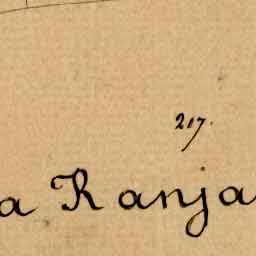 217.
a Kanja